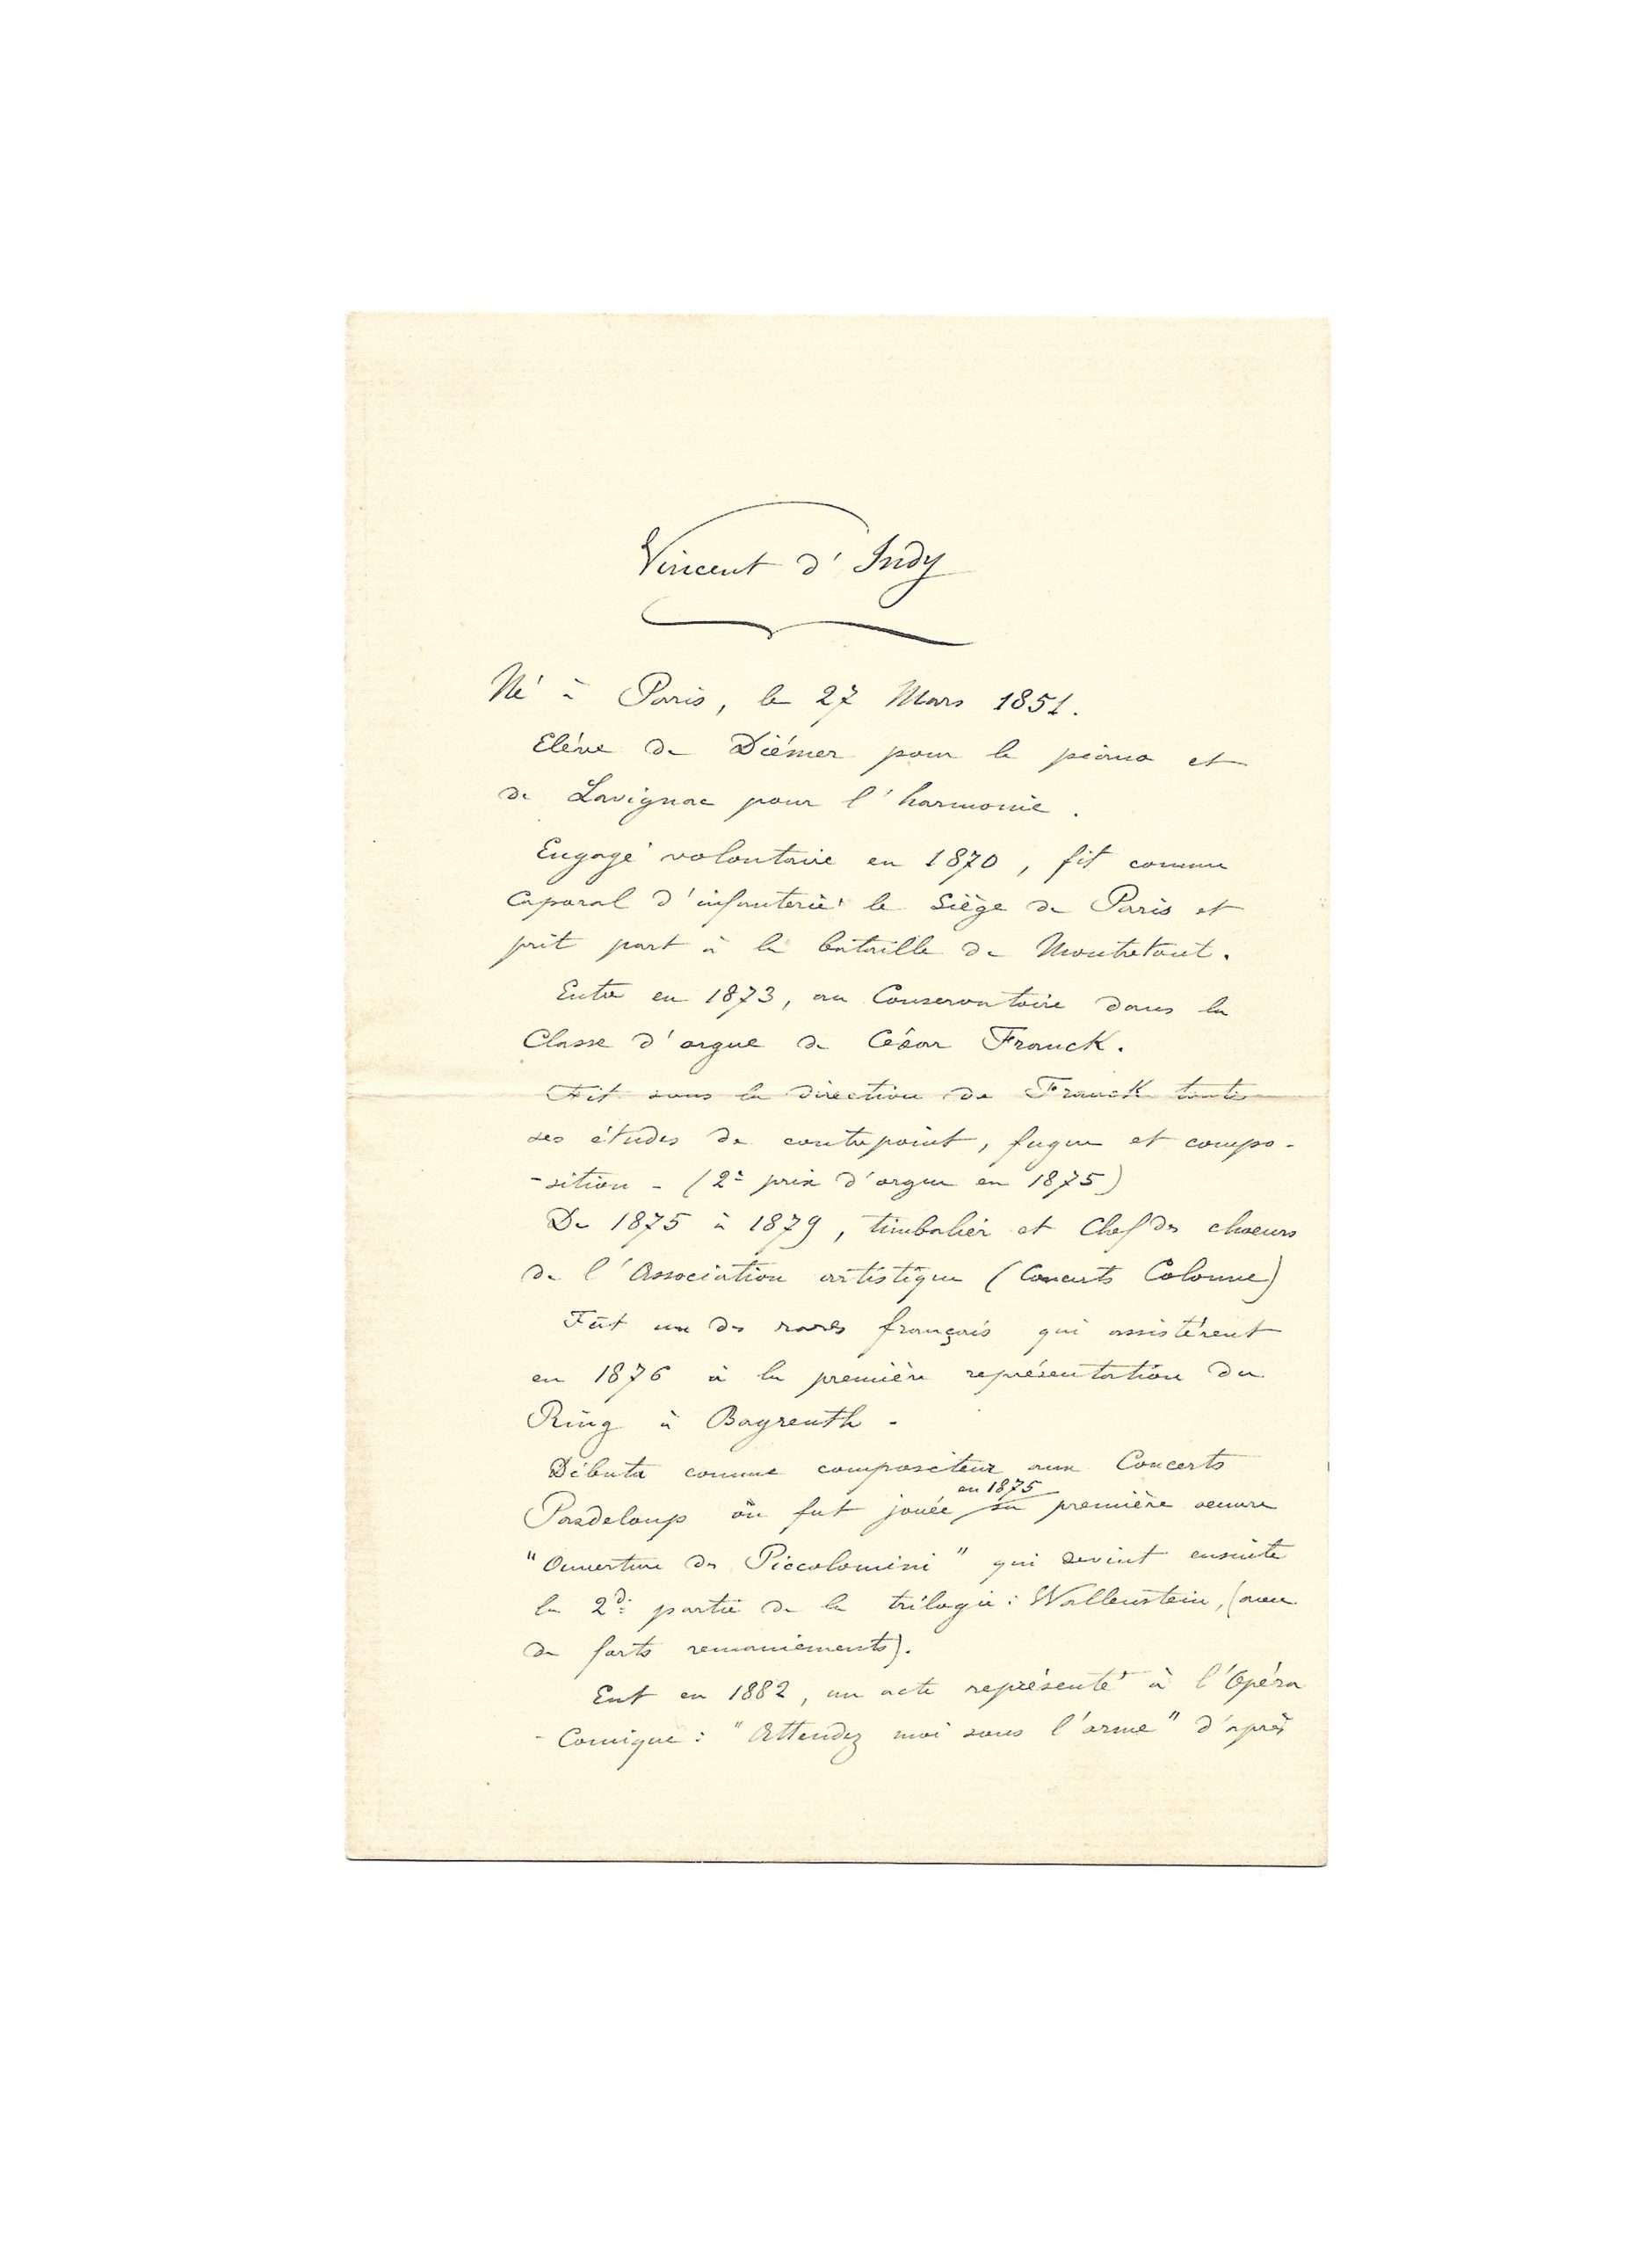 Vincent d'Indy
Né à Paris, le 27 Mars 1851.
Elève de Diémer pour le piano et
de Lavignac pour l'harmonie.
Engagé volontaire en 1870, fit comme
Caporal d'infanterie le Siège de Paris et
prit part à la bataille de Montretout.
Entre en 1873, au Conservatoire dans la
Classe d'orgue de César Franck.
Fit sous la direction de Franck toutes
ses études de contrepoint, fugue et compo-
-sition - (2e prix d'orgue en 1875)
De 1875 à 1879, timbalier et Chef des choeurs
de l'Association artistique (Concerts Colonne)
Fût un des rares français qui assistèrent
en 1876 à la première représentation du
Ring à Bayreuth -
Débuta comme compositeur aux Concerts
en 1875
Pasdeloup où fut jouée sa première oeuvre
"Ouverture des Piccolomini" qui devint ensuite
la 2de partie de la trilogie : Wallenstein, (avec
de forts remaniements).
Eut en 1882, un acte représenté à l'Opéra
-Comique : "Attendez moi sous l'orme" d'après